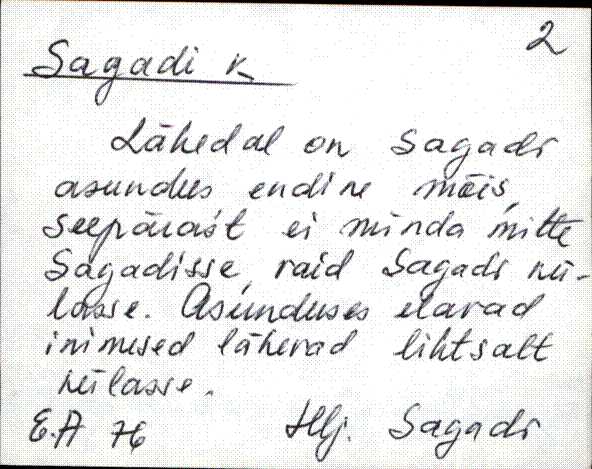 2
Sagadi k
Lähedal on Sagadi
asundus endine mõis,
seepärast ei minda mitte
Sagadisse, vaid Sagadi kü-
lasse. Asunduses elavad
inimesed lähevad lihtsalt
külasse.
E.A 76 Hlj. Sagadi